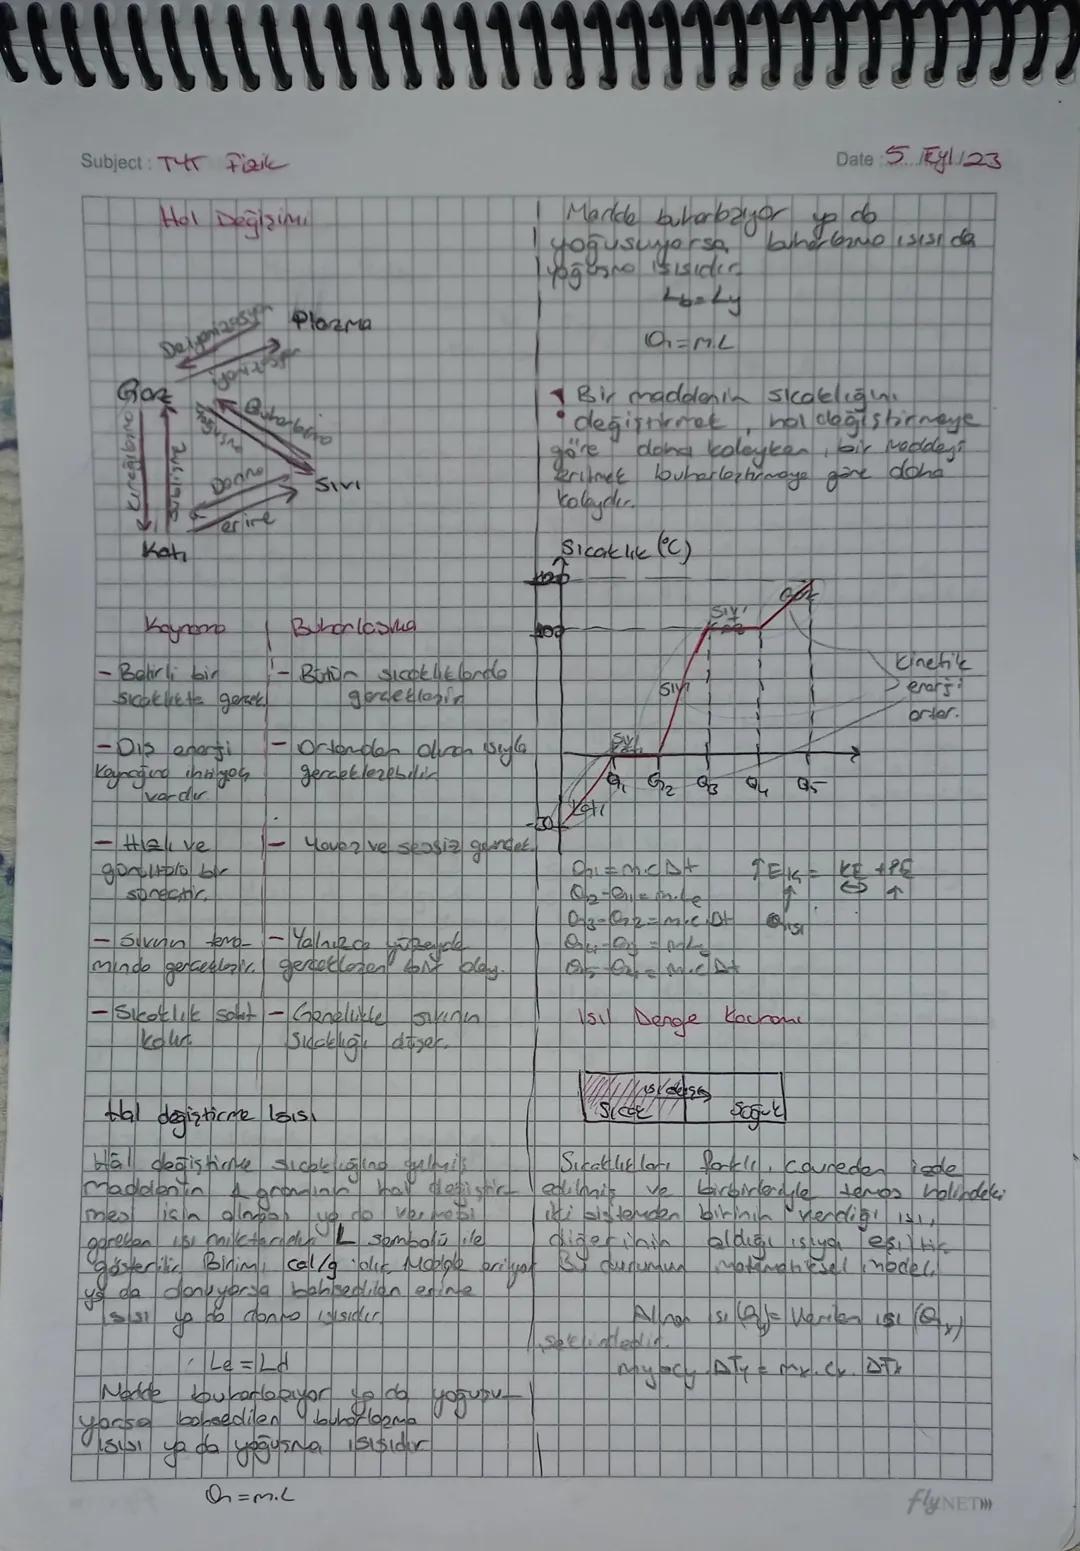 Subject : TYT Fizik
Date : 5 Eyl 23
Hal Değişimi
Deiyonizasyon
Plazma
iyonizasyon
Gaz
Buharlaşma
Yoğuşma
Kırağılaşma
Süblimleşme
Donma
Sıvı
erime
Katı
Kaynama | Buharlaşma
- Belirli bir
sıcaklıkta gerçek
- Bütün sıcaklıklarda
gerçekleşir
- Dış enerji
kaynağına ihtiyaç
vardır
- Ortamdan alınan ısıyla
gerçekleşebilir
- Hızlı ve
gürültülü bir
süreçtir.
- Yavaş ve sessiz gerçek.
- Sıvının tama-
mında gerçekleşir.
- Yalnızca yüzeyde
gerçekleşen bir olay.
- Sıcaklık sabit
kalır.
- Genellikle sıvının
sıcaklığı düşer.
Hal değiştirme Isısı
Hâl değiştirme sıcaklığına gelmiş
maddenin 1 gramının hal değiştir
mesi için alması ya da vermesi
gereken ısı miktarıdır L sembolü ile
gösterilir Birimi cal/g 'dır Madde eriyor
ya da donuyorsa bahsedilen erime
ısısı ya da donma ısısıdır
Le = Ld
Madde buharlaşıyor ya da yoğuşu-
yorsa bahsedilen buharlaşma
ısısı ya da yoğuşma ısısıdır
Q = m.L
Madde buharlaşıyor ya da
yoğuşuyorsa buharlaşma ısısı da
yoğuşma ısısıdır
Lb = Ly
Q = m.L
! Bir maddenin sıcaklığını
değiştirmek, hal değiştirmeye
göre daha kolayken, bir maddeyi
eritmek buharlaştırmaya göre daha
kolaydır.
Sıcaklık (°C)
120
100
Sıvı
Gaz
Sıvı
Kinetik
enerji
artar.
Sıvı
Q1 Q2 Q3 Q4 Q5
Katı
Q1 = m.c.Δt
Q2-Q1 = m.Le
Q3-Q2 = m.c.Δt
Q4-Q3 = m.Lb
Q5-Q4 = m.c.Δt
KE + PE
Isıl Denge Kavramı
ısı
Sıcak
Soğuk
Sıcaklıkları farklı, çevreden izole
edilmiş ve birbirleriyle temas halindeki
iki sistemden birinin verdiği ısı,
diğerinin aldığı ısıya eşittir
Bu durumun matematiksel modeli
Alınan ısı (Qy) = Verilen ısı (Qx)
şeklindedir.
my.cy.ΔTy = mx.cx.ΔTx
flyNET